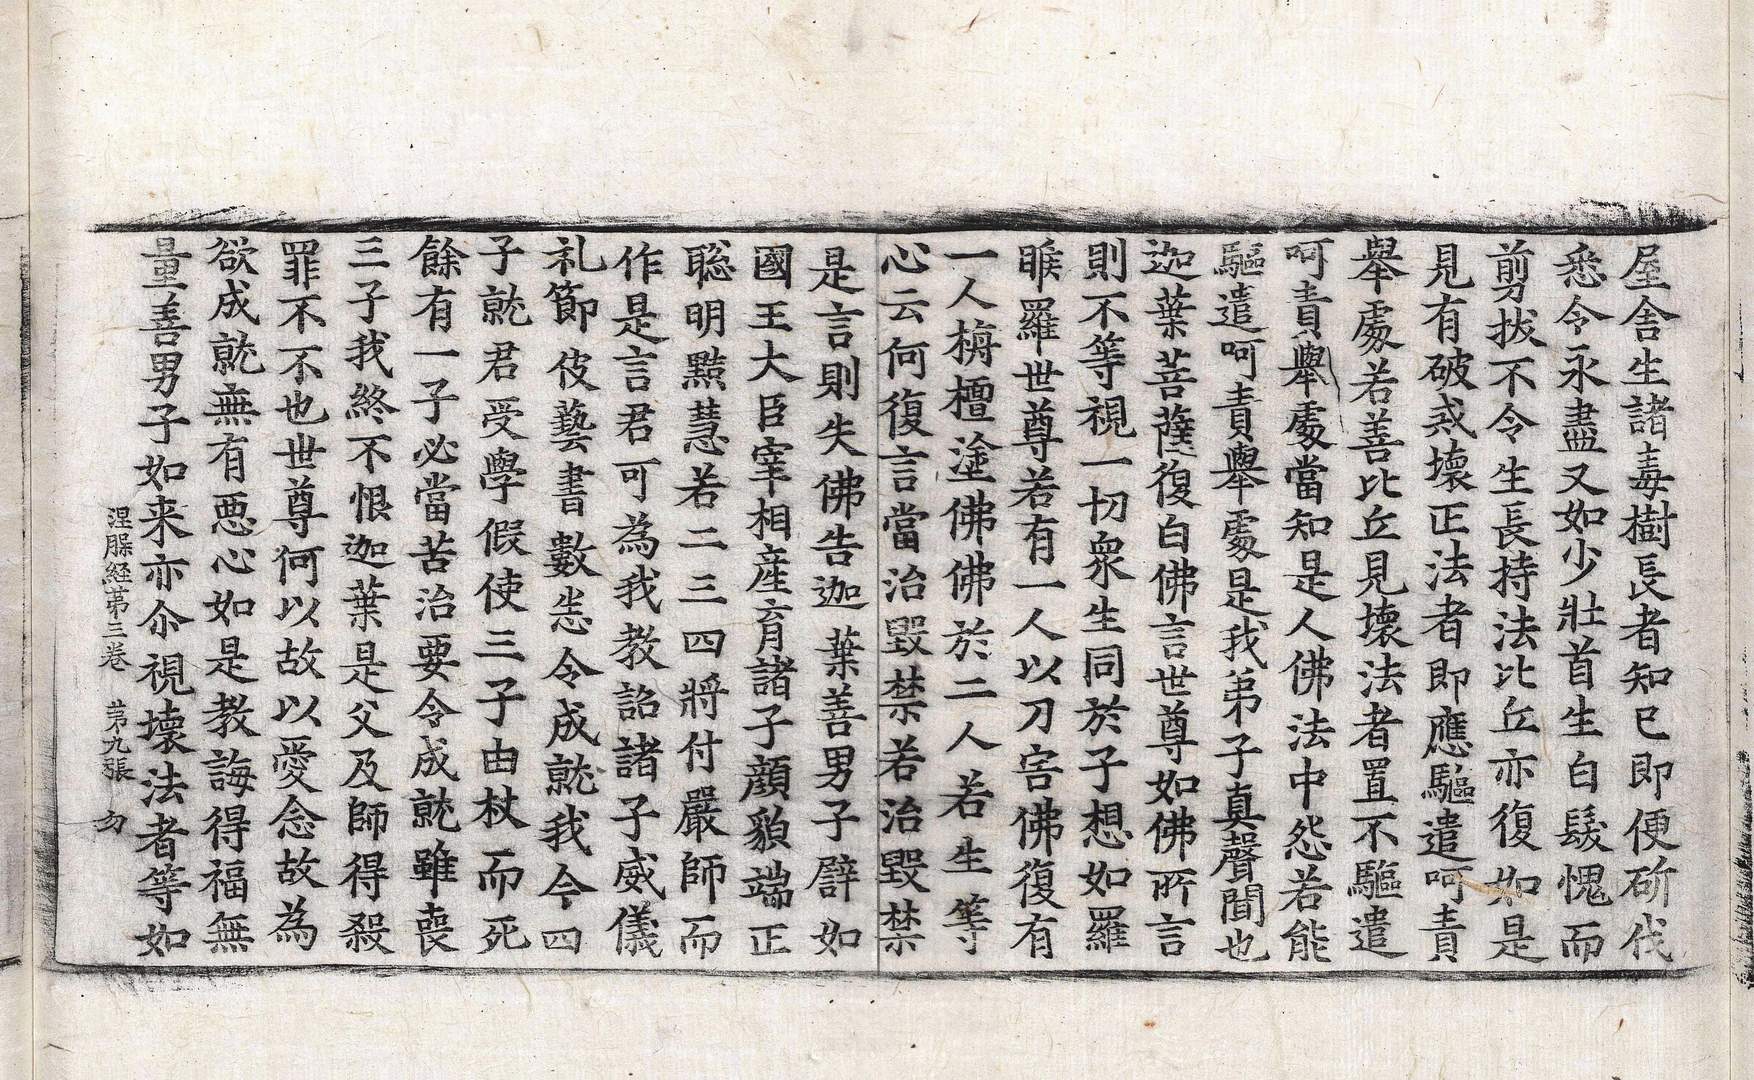 屋舍生諸毒樹長者知已即便斫伐
悉令永盡又如少壯首生白髮愧而
剪拔不令生長持法比丘亦復如是
見有破戒壞正法者即應驅遣呵責
舉處若善比丘見壞法者置不驅遣
呵責舉處當知是人佛法中怨若能
驅遣呵責舉處是我弟子真聲聞也
迦葉菩薩復白佛言世尊如佛所言
則不等視一切衆生同於子想如羅
睺羅世尊若有一人以刀害佛復有
一人栴檀塗佛佛於二人若生等
心云何復言當治毀禁若治毀禁
是言則失佛告迦葉善男子譬如
國王大臣宰相産育諸子顔貌端正
聡明黠慧若二三四將付嚴師而
作是言君可為我教詔諸子威儀
礼節伎藝書數悉令成就我今四
子就君受學假使三子由杖而死
餘有一子必當苦治要令成就雖喪
三子我終不恨迦葉是父及師得殺
罪不不也世尊何以故以愛念故為
欲成就無有惡心如是教誨得福無
量善男子如来亦尒視壞法者等如
涅槃経第三卷 第九張 㔟